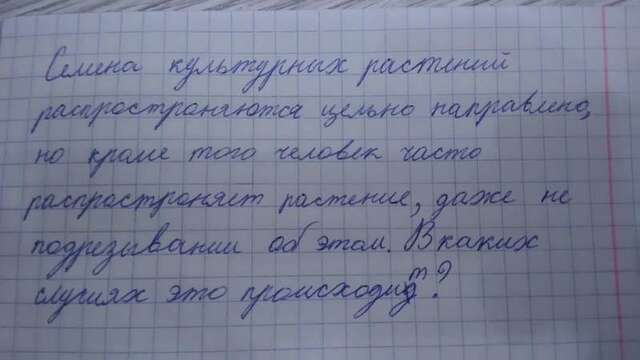 Семена культурных растений
распространяются цельно направлено,
но кроме того человек часто
распространяет растение, даже не
подрезывании об этом. В каких
случиях это происходит?